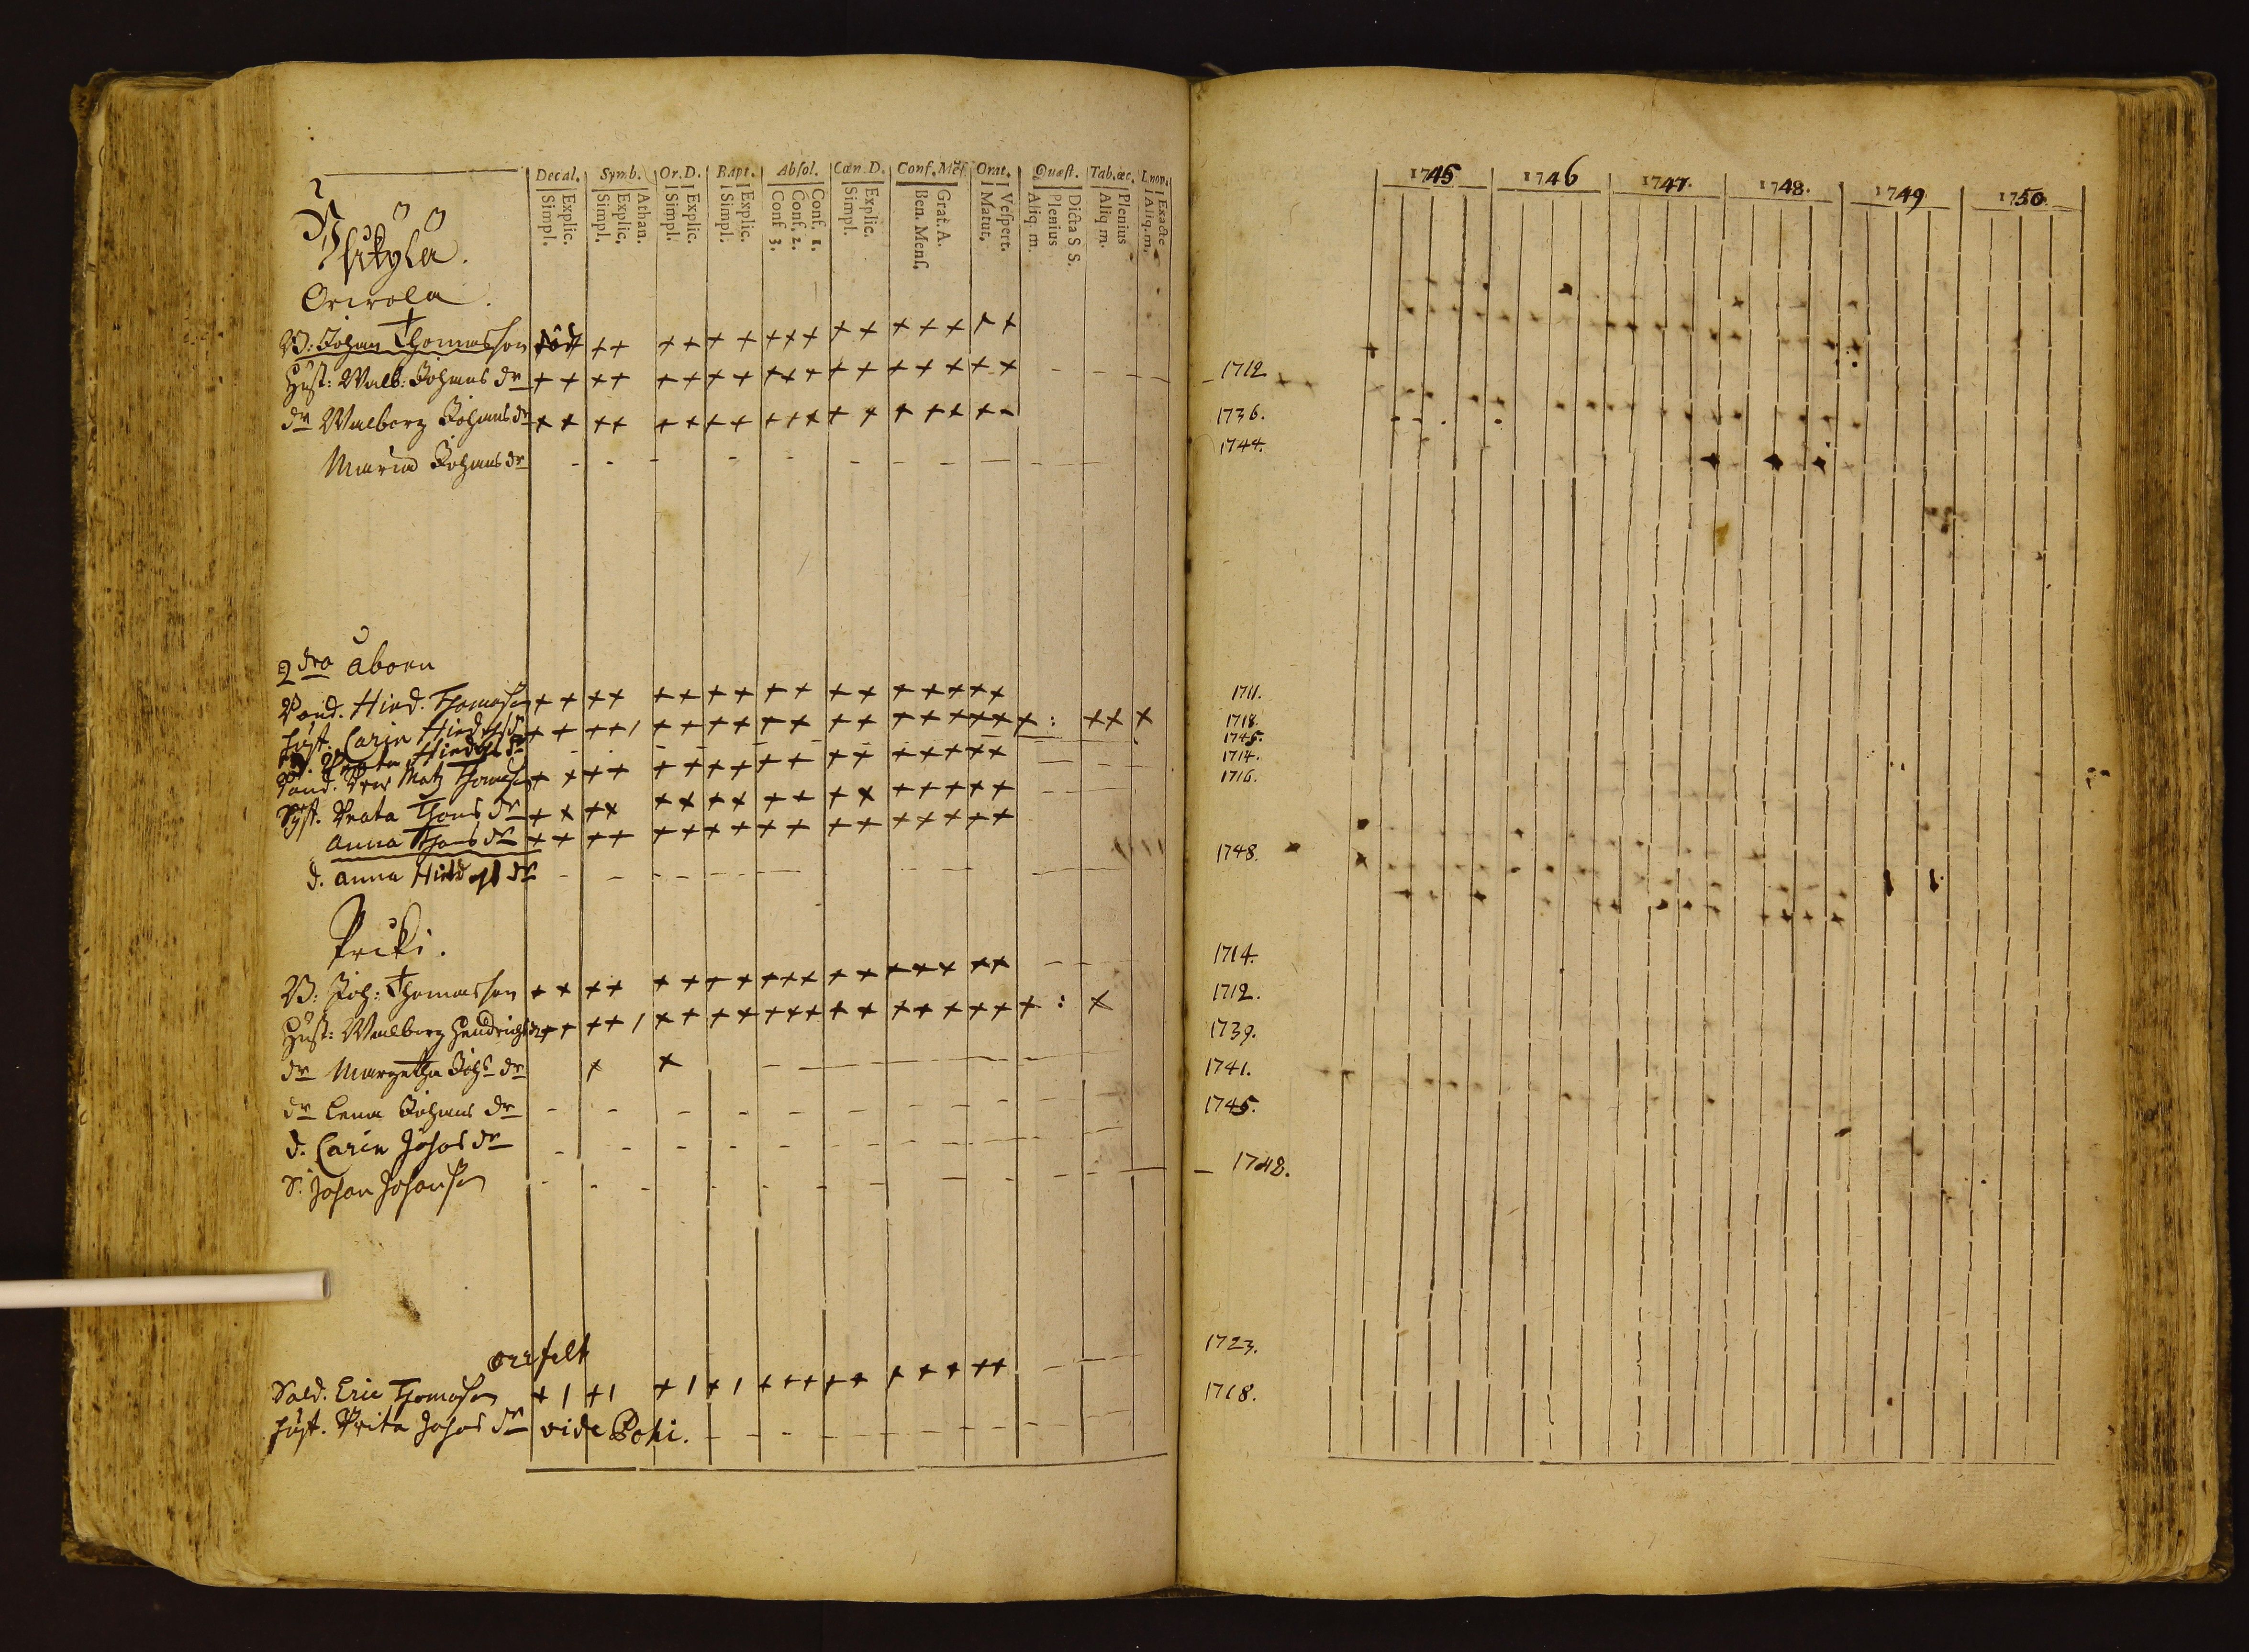 Decal. Symb. Or. D. Bapt. Absol. Cœn. D. Conf. Mĕſ. Orat. Quæst. Tab. œc. Lnop.
Simpl. Explic. Simpl. Explic. Athan. Simpl. Explic. Simpl. Explic. Conf. 3. Conf. 2. Conf. 1. Simpl. Explic. Ben. Menſ. Grat. A. Matut. Veſpert. Aliq. m. Plenius Dicta S S. Aliq. m. Plenius Aliq. m. Exacte
1745 1746 1747. 1748. 1749 1750.
Orivola.
B: Johan Thomasson död + + + + + + + + + + + + + + + +
Hust: Walb: Johans dr + + + + + + + + + + + + + + + + + + 1712
dr Walborg Johans dr + + + + + + + + + + + + + + + + + 1736.
Maria Johans dr 1744.
2dra åboen
Bond. Hind. Thomass + + + + + + + + + + + + + + + + + 1711.
hust. Carin Hind dr + + + + / + + + + + + + + + + + + + + : + + + 1718.
1745.
Bond. Bror Matz Thomass + + + + + + + + + + + + + + + + + 1714.
Syst. Beata Thoms dr + + + + + + + + + + + + + + + + + 1716.
Anna Thoms dr + + + + + + + + + + + + + + + + +
d. Anna Hind dr 1748.
Pricki.
B: Joh: Thomasson + + + + + + + + + + + + + + + + + + 1714.
Hust: Walborg Hendrichs dr + + + + / + + + + + + + + + + + + + + + : + 1712.
dr Margetha Johs dr + + 1739.
dr Lena Johans dr 1741.
d. Carin Johas dr 1745.
S. Johan Johanss 1748.
Orrfelt
Sold. Eric Thomass + / + / + / + / + + + + + + + + + + 1723.
hust. Brita Johas dr vide Pohi. 1718.